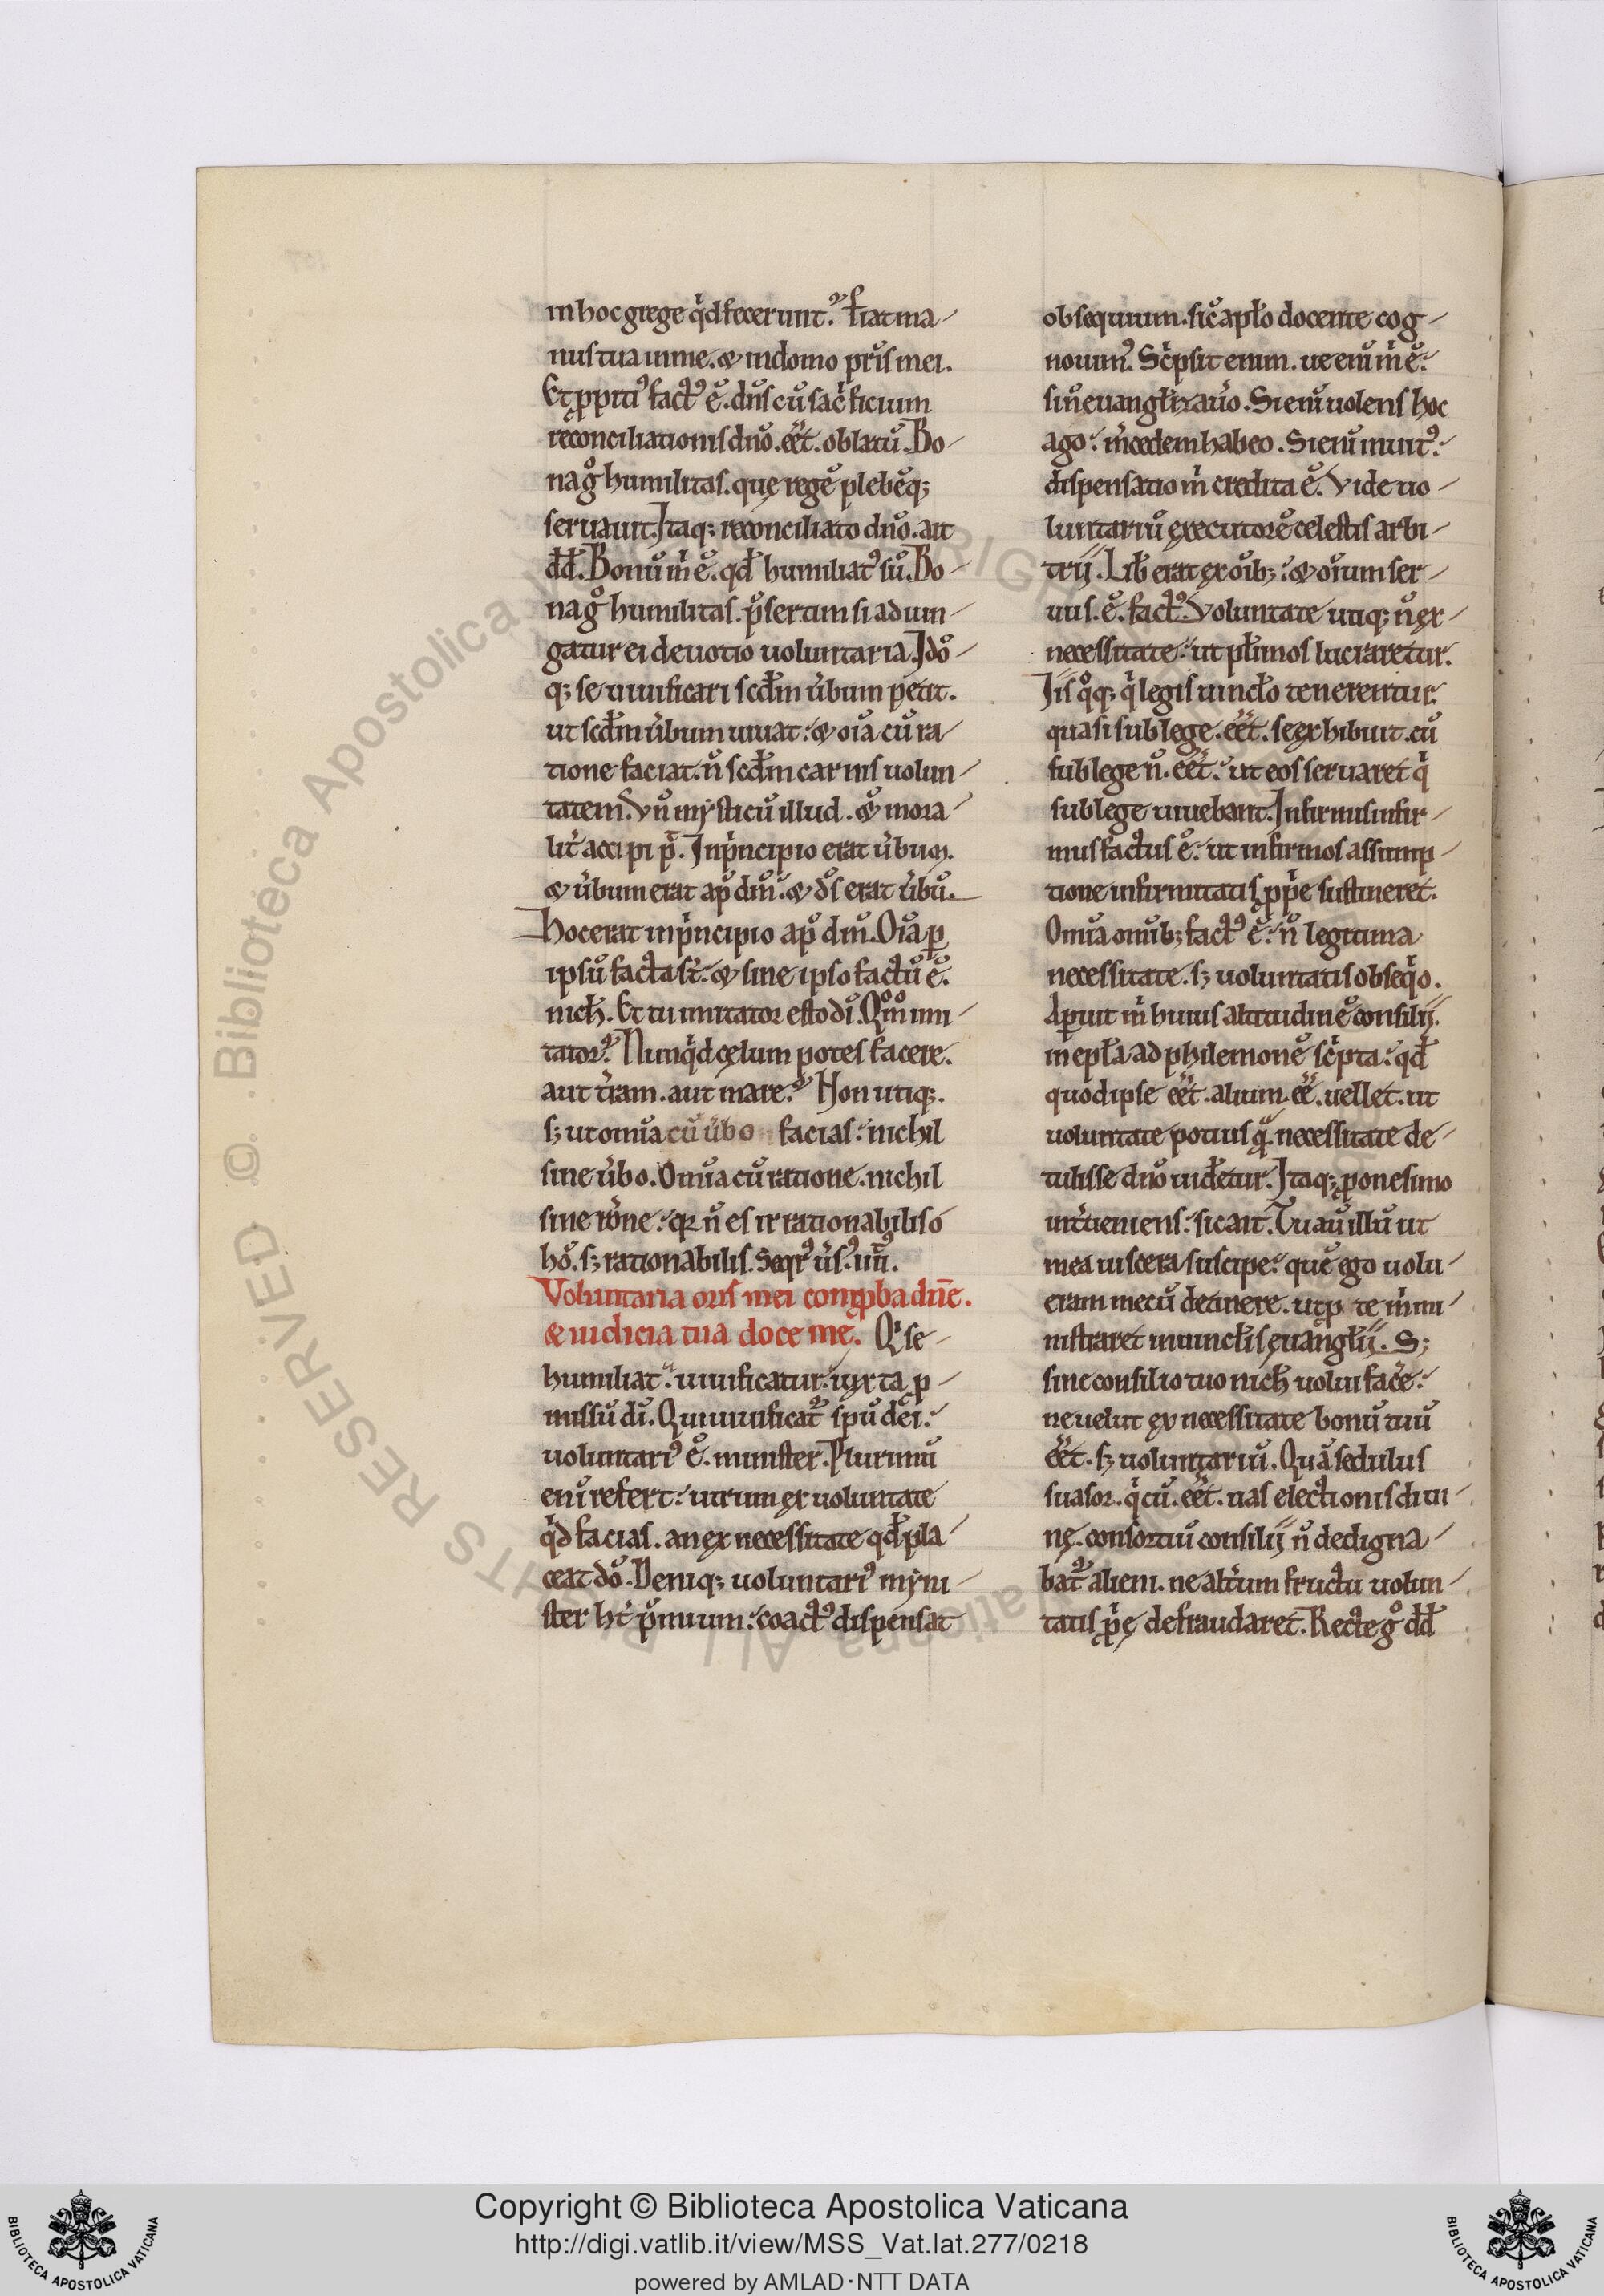 in hoc grege q̍d fecerunt. Fiat ma-
nus tua in me. ⁊ in domo pr̃is mei.
Et ꝓpitiꝰ factꝰ ẽ. dñs cũ sac̍ficium
reconciliationis dño. eẽt. oblatũ. Bo-
na gͦ humilitas. quę regẽ plebẽq;
seruauit. Itaq; reconciliato dño. ait
dđ. Bonũ m̍ ẽ. qđ humiliatꝰ sũ. Bo-
na gͦ humilitas. p̃sertim si adiun-
gatur ei deuotio uoluntaria. Idõ-
q; se uiuificari scđm ũbum petit.
ut scđm ũbum uiuat: ⁊ oĩa cũ ra-
tione faciat. ñ scđm carnis uolun-
tatem. Vñ mysticũ illud. ⁊ mora-
lit̃ accipi p̃. In p̍ncipio erat ũbum.
⁊ ũbum erat apđ dm̃. ⁊ d̃s erat ũbũ.
Hoc erat in p̍ncipio apđ dm̃. Oĩa ꝑ
ipsũ facta st̃. ⁊ sine ipso factũ ẽ.
nich̃. Et tu imitator esto dĩ. Qm̊o imi-
tator? Nunq̍d cęlum potes facere.
aut t̃ram. aut mare? Non utiq;.
s; ut omĩa cũ ũbo facias: nichil
sine ũbo. Omĩa cũ ratione. nichil
sine rõne: qr ñ es irrationabilis ó
hõ. s; rationabilis. Seqr̃ ũs. iiĩĩ.
Voluntaria oris mei comꝓba dñe.
& iudicia tua doce me. Q̍ se
humiliat. uiuificatur. iuxta ꝓ-
missũ dĩ. Qui uiuificat̃ spũ deĩ:
uoluntariꝰ ẽ. minister. Plurimũ
enĩ refert: utrum ex uoluntate
q̍d facias. an ex necessitate qđ pla-
ceat dõ. Deniq; uoluntariꝰ myni-
ster ht̃ p̃mium: coactꝰ dispensat
obsequium. sic̃ apło docente cog-
nouimꝰ. Sc̍psit enim. ue enĩ m̍ ẽ:
si ñ euangłizauõ. Si enĩ uolens hoc
ago: m̃cedem habeo. Si enĩ inuitꝰ:
dispensatio m̍ credita ẽ. Vide uo-
luntariũ executorẽ celestis arbi-
trij. Lib̃ erat ex oĩb;: ⁊ oĩum ser-
uus. ẽ. factꝰ. Voluntate utiq; ñ ex
necessitate: ut pĺimos lucraretur.
Iis q̊q; q̍ legis uincło tenerentur.
quasi sub lege. eẽt. se exhibuit. cũ
sub lege ñ. eẽt: ut eos seruaret q̍
sub lege uiuebant. Infirmis infir-
mus factus ẽ: ut infirmos assump-
tione infirmitatis ꝓp̍e sustineret.
Omĩa omĩb; factꝰ ẽ: ñ legitima
necessitate. s; uoluntatis obseq̍o.
Aperuit m̍ huius altitudinẽ consilij.
in epła ad philemonẽ sc̍pta: qđ
quod ipse eẽt. alium. eẽ. uellet. ut
uoluntate potius q̃. necessitate de-
tulisse dño uidetur. Itaq; ꝓ onesimo
int̃ueniens: sic ait. Tu aũ illũ ut
mea uiscera suscipe: quẽ ego uolu-
eram mecũ detinere. ut ꝓ te m̍ mi-
nistraret in uincłis euangłij. S;
sine consilio tuo nich̃ uolui fac̃e:
ne uelut ex necessitate bonũ tuũ
eẽt. s; uoluntariũ. Quã sedulus
suasor. q̍ cũ. eẽt. uas electionis diui-
nę. consortiũ consilij ñ dedigna-
bat̃ alieni. ne alt̃um fructu uolun-
tatis ꝓp̍ę defraudaret. Recte gͦ dđ
Copyright © Biblioteca Apostolica Vaticana
http://digi.vatlib.it/view/MSS_Vat.lat.277/0218
powered by AMLAD·NTT DATA